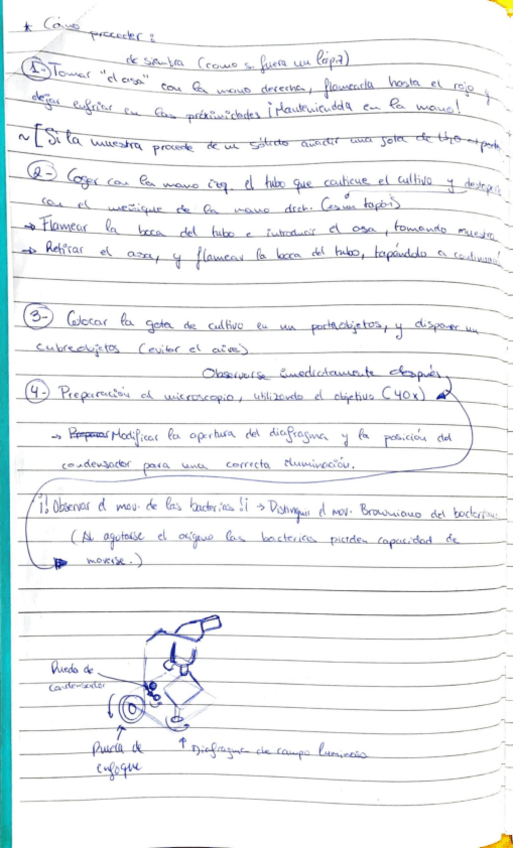 * Cómo proceder:
de siembra (como si fuera un lápiz)
1- Tomar "el asa" con la mano derecha, flamearla hasta el rojo y
dejar enfriar en las proximidades ¡Manteniendola en la mano!
~ [Si la muestra procede de un sólido añadir una gota de H₂O
2- Coger con la mano izq. el tubo que contiene el cultivo y
con el meñique de la mano dcha. (sin tapón)
→ Flamear la boca del tubo e introducir el asa, tomando muestra
→ Retirar el asa, y flamear la boca del tubo, tapándolo a
3- Colocar la gota de cultivo en un portaobjetos, y disponer un
cubreobjetos (evitar el aire)
Observarse inmediatamente después
4- Preparación al microscopio, utilizando el objetivo (40x)
→ Modificar la apertura del diafragma y la posición del
condensador para una correcta iluminación.
¡! Observar el mov. de las bacterias !¡ → Distinguir el mov. Browniano del
(Al agotarse el oxígeno las bacterias pierden capacidad de
moverse.)
Rueda de
condensador
Rueda de
enfoque
↑ Diafragma de campo luminoso